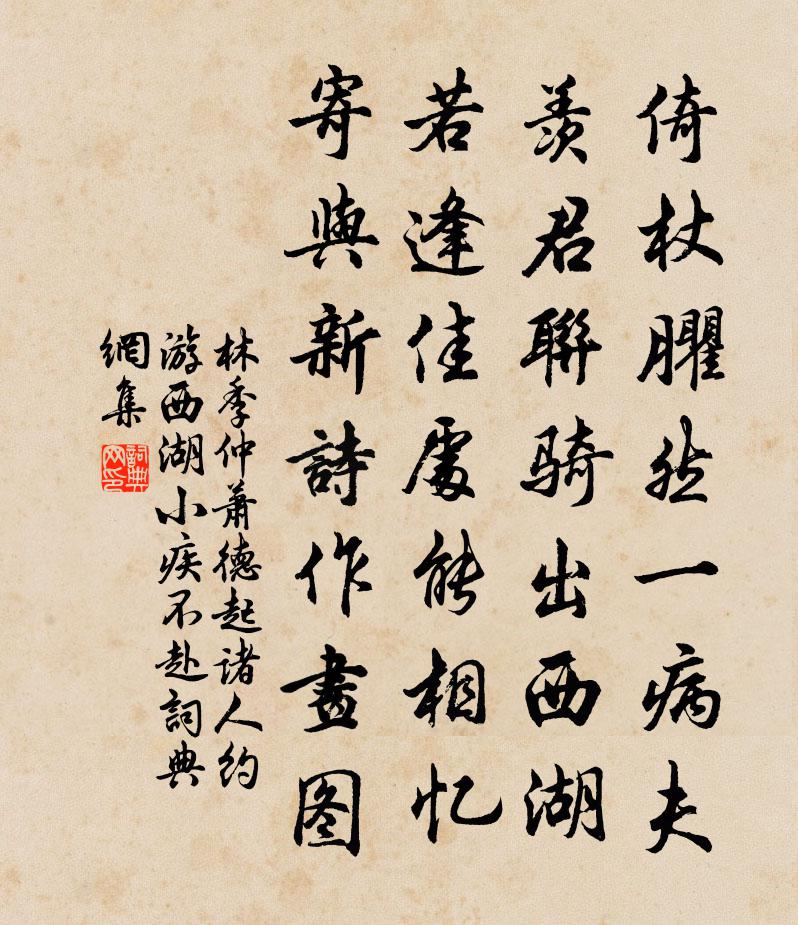 倚杖臞然一病夫
羨君聯骑出西湖
若逢佳處能相忆
寄與新詩作畫图
林季仲萧德起诸人约
游西湖小疾不赴詞典
網集
詞典网印